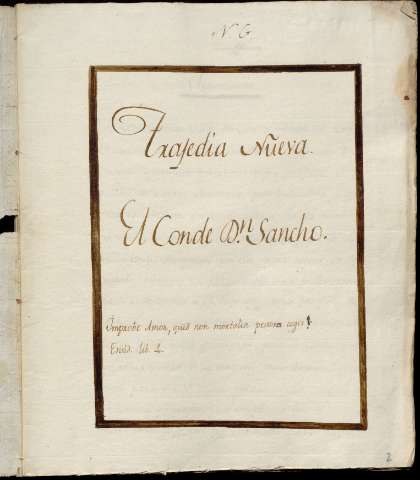 N. 6.
Trajedia Nueva.
El Conde Dn. Sancho.
Improbe Amor, quid non mortalia pectora cogis!
Eneid. lib. 4.
2